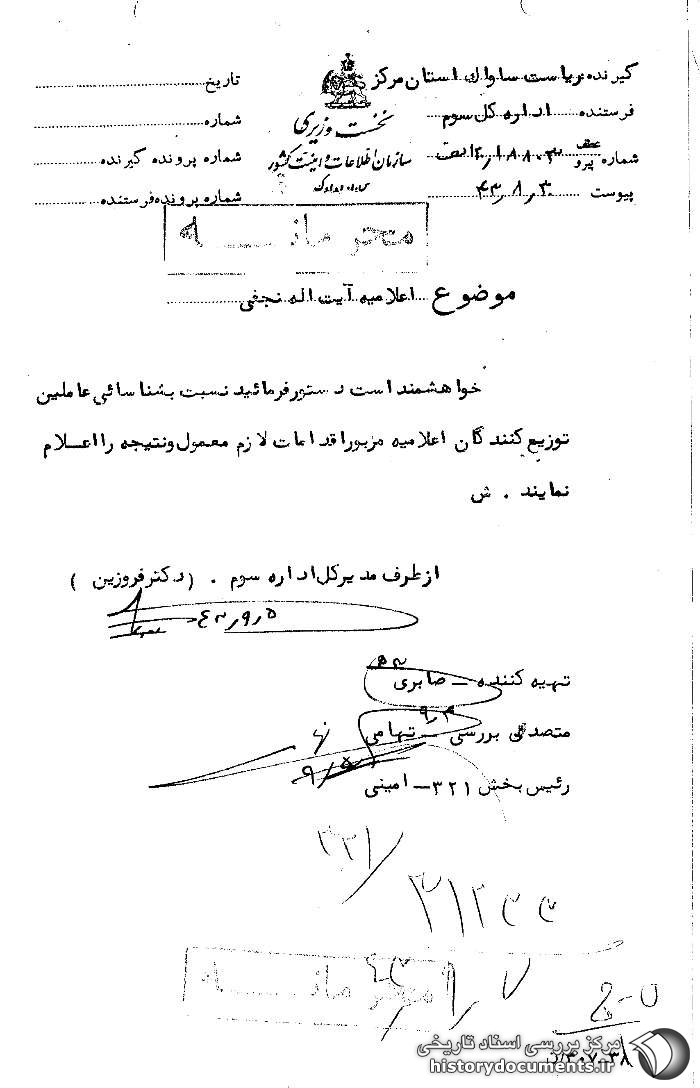 گیرنده ریاست ساواک استان مرکز
فرستنده اداره کل سوم
شماره
پیوست ۴۳٫۸٫۳۰
نخست وزیری
سازمان اطلاعات و امنیت کشور
تاریخ
شماره
شماره پرونده گیرنده
شماره پرونده فرستنده
محرمانه
موضوع اعلامیه آیت اله نجفی
خواهشمند است دستور فرمائید نسبت بشناسائی عاملین
توزیع کنندگان اعلامیه مزبور اقدامات لازم معمول و نتیجه را اعلام
نمایند . ش
از طرف مدیرکل اداره سوم . (دکتر فروزین )
تهیه کننده ــ صابری
متصدی بررسی ــ تهامی
۹/۵
رئیس بخش ۳۲۱ــ امینی
۳۲۱
محرمانه
مرکز بررسی اسناد تاریخی
historydocuments.ir